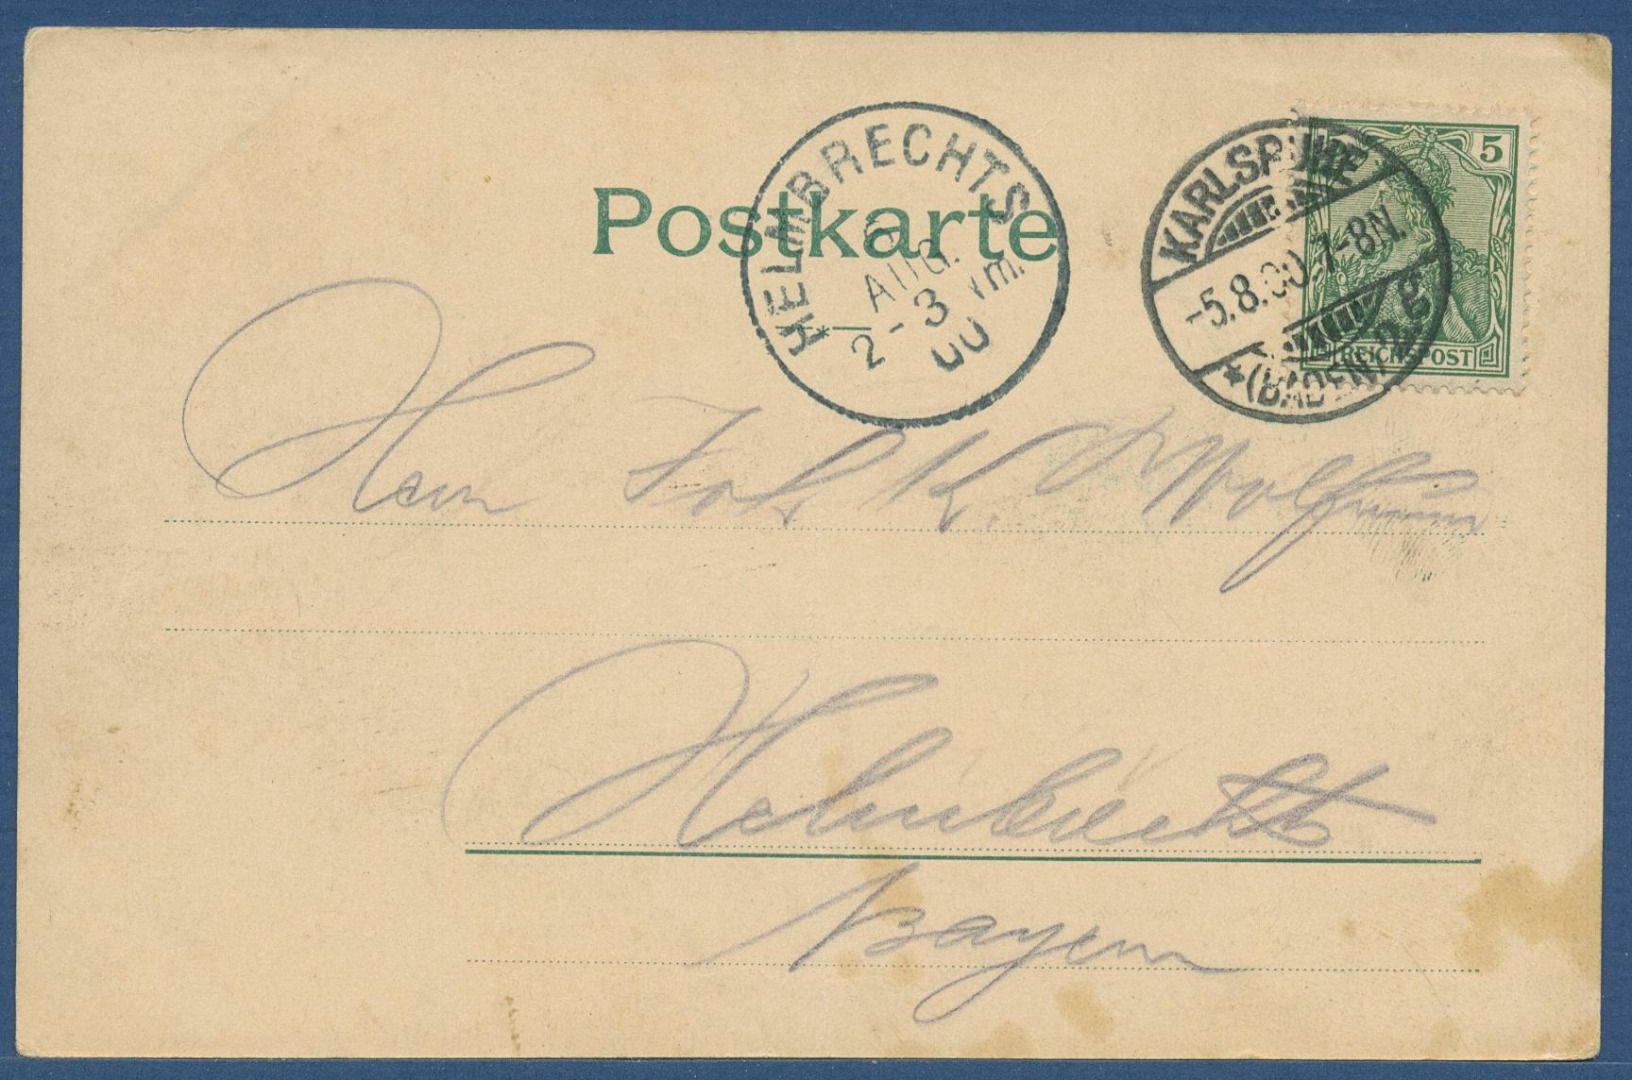 Postkarte
HELMBRECHTS
6
AUG.
2-3 Vm.
00
KARLSRUHE
-5.8.00.7-8N.
* (BADEN) 2 g
5
REICHSPOST
Herrn Joh. K. Wolfrum
Helmbrechts
Bayern